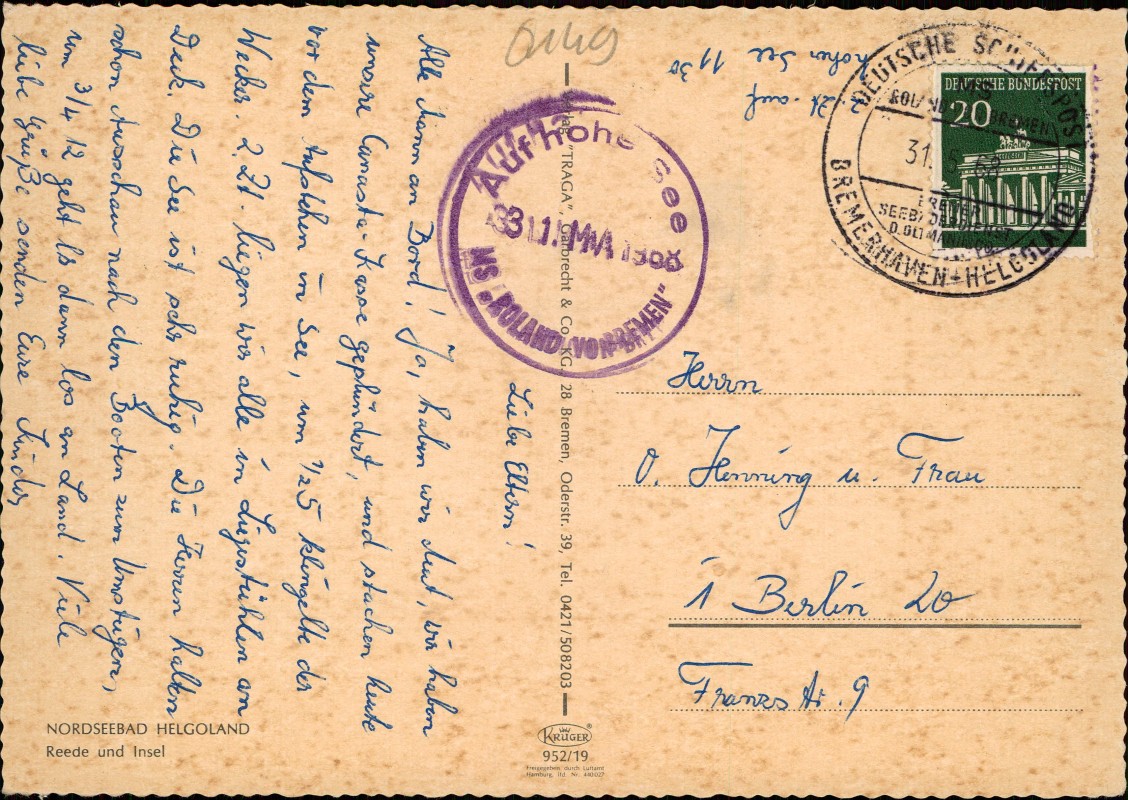 z. Zt. auf
hoher See 11 30
Liebe Eltern!
Alle Mann an Bord! Ja, haben wir Mut, wir haben
unsere Canasta-Kasse geplündert, und stachen heute
vor dem Aufstehen in See, um 1/2 5 klingelte der
Wecker. z. Zt. liegen wir alle in Liegestühlen an
Deck. Die See ist sehr ruhig. Die Herren halten
schon Ausschau nach den Booten zum Umsteigen,
um 3/4 12 geht ls dann los an Land. Viele
liebe Grüße senden Eure Kinder
Auf hoher See
31. MAI 1968
MS „ROLAND VON BREMEN"
DEUTSCHE SCHIFFSPOST
ROLAND VON BREMEN
31. 5. 68
BREMER
SEEBÄDERDIENST
BREMERHAVEN - HELGOLAND
DEUTSCHE BUNDESPOST
20
Herrn
O. Henning u. Frau
1 Berlin 20
Franzstr. 9
"TRAGA", Garbrecht & Co. KG., 28 Bremen, Oderstr. 39, Tel. 0421/508203
NORDSEEBAD HELGOLAND
Reede und Insel
KRÜGER
952/19
Freigegeben durch Luftamt
Hamburg, lfd. Nr. 440027